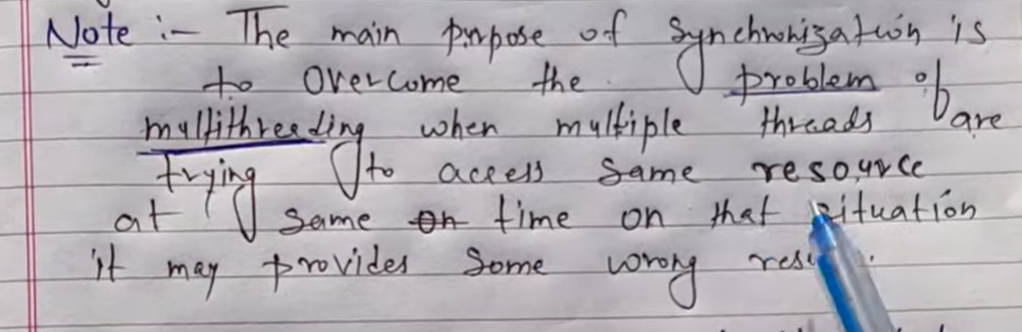 Note :- The main purpose of Synchronization is
to overcome the problem of
multithreading when multiple threads are
trying to access same resource
at same on time on that situation
it may provides some wrong